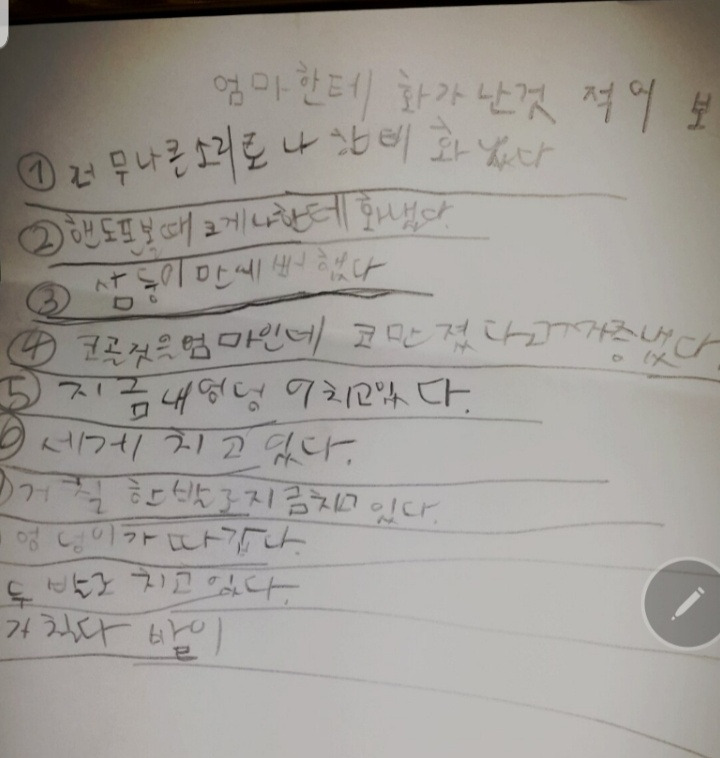 엄마한테 화가 난것 적어 보
① 너무나 큰소리로 나한테 화냈다
② 핸드폰볼때 크게 나한테 화냈다.
③ 삼둥이 만
④ 코골것은 엄마인데 코만졌다고 짜증냈다.
⑤ 지금 내 엉덩이 치고있다.
세게 치고 있다.
거칠한 발로 지금치고 있다.
엉덩이가 따갑다.
두 발로 치고 있다.
거칠다 발이